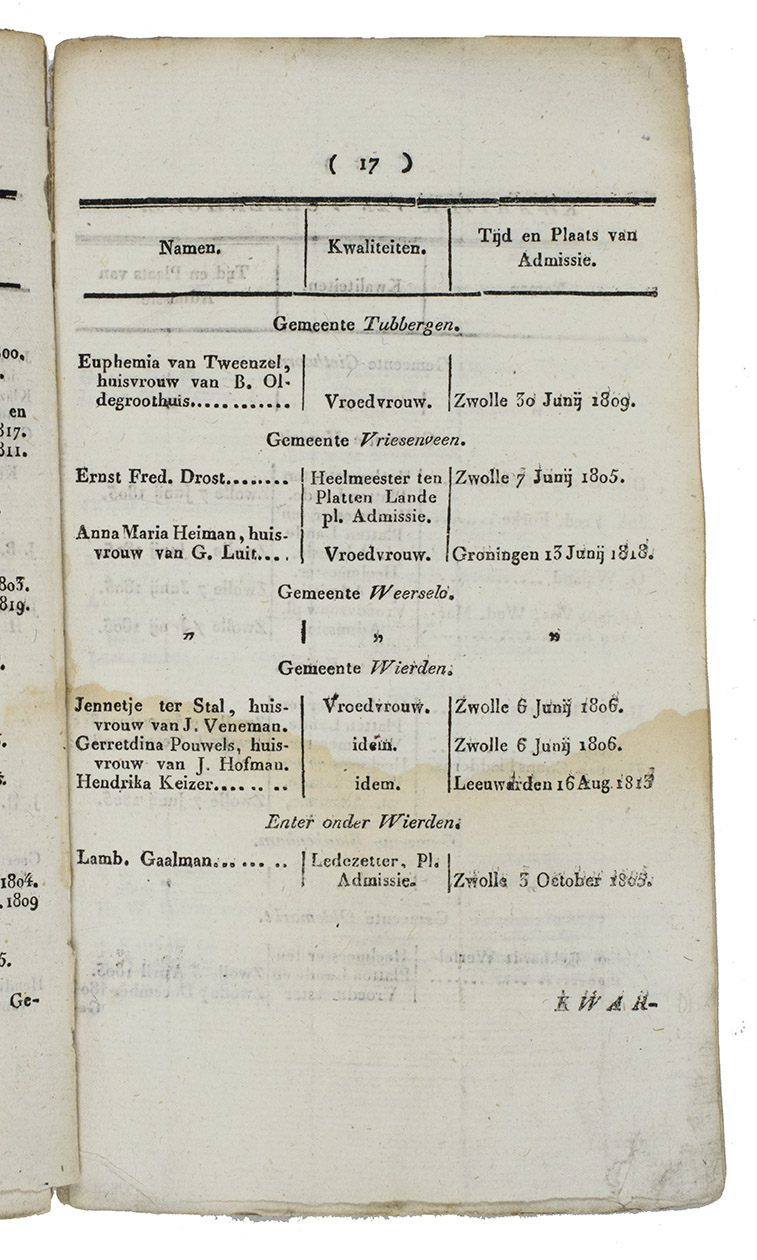 ( 17 )
Namen. Kwaliteiten. Tijd en Plaats van
Admissie.
Gemeente Tubbergen.
Euphemia van Tweenzel,
huisvrouw van B. Ol-
degroothuis............ Vroedvrouw. Zwolle 30 Junij 1809.
Gemeente Vriesenveen.
Ernst Fred. Drost........ Heelmeester ten Zwolle 7 Junij 1805.
Platten Lande
pl. Admissie.
Anna Maria Heiman, huis-
vrouw van G. Luit.... Vroedvrouw. Groningen 13 Junij 1818.
Gemeente Weerselo.
„ „ „
Gemeente Wierden.
Jennetje ter Stal, huis- Vroedvrouw. Zwolle 6 Junij 1806.
vrouw van J. Veneman.
Gerretdina Pouwels, huis- idem. Zwolle 6 Junij 1806.
vrouw van J. Hofman.
Hendrika Keizer........ idem. Leeuwarden 16 Aug. 1813
Enter onder Wierden.
Lamb. Gaalman........ Ledezetter, Pl.
Admissie. Zwolle 3 October
KWAR-
00.
en
317.
311.
803.
819.
1804.
1809
5.
Ge-